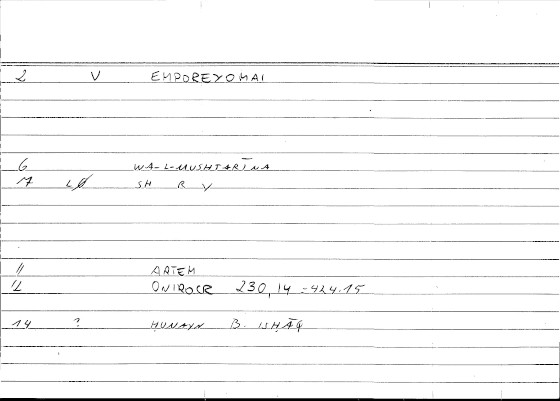 2 V EMPOREYOMAI
6 WA-L-MUSHTARĪNA
7 LØ SH R V
11 ARTEM
12 ONIROCR 230,14 = 424.15
14 ? ḤUNAYN B. ISḤĀQ